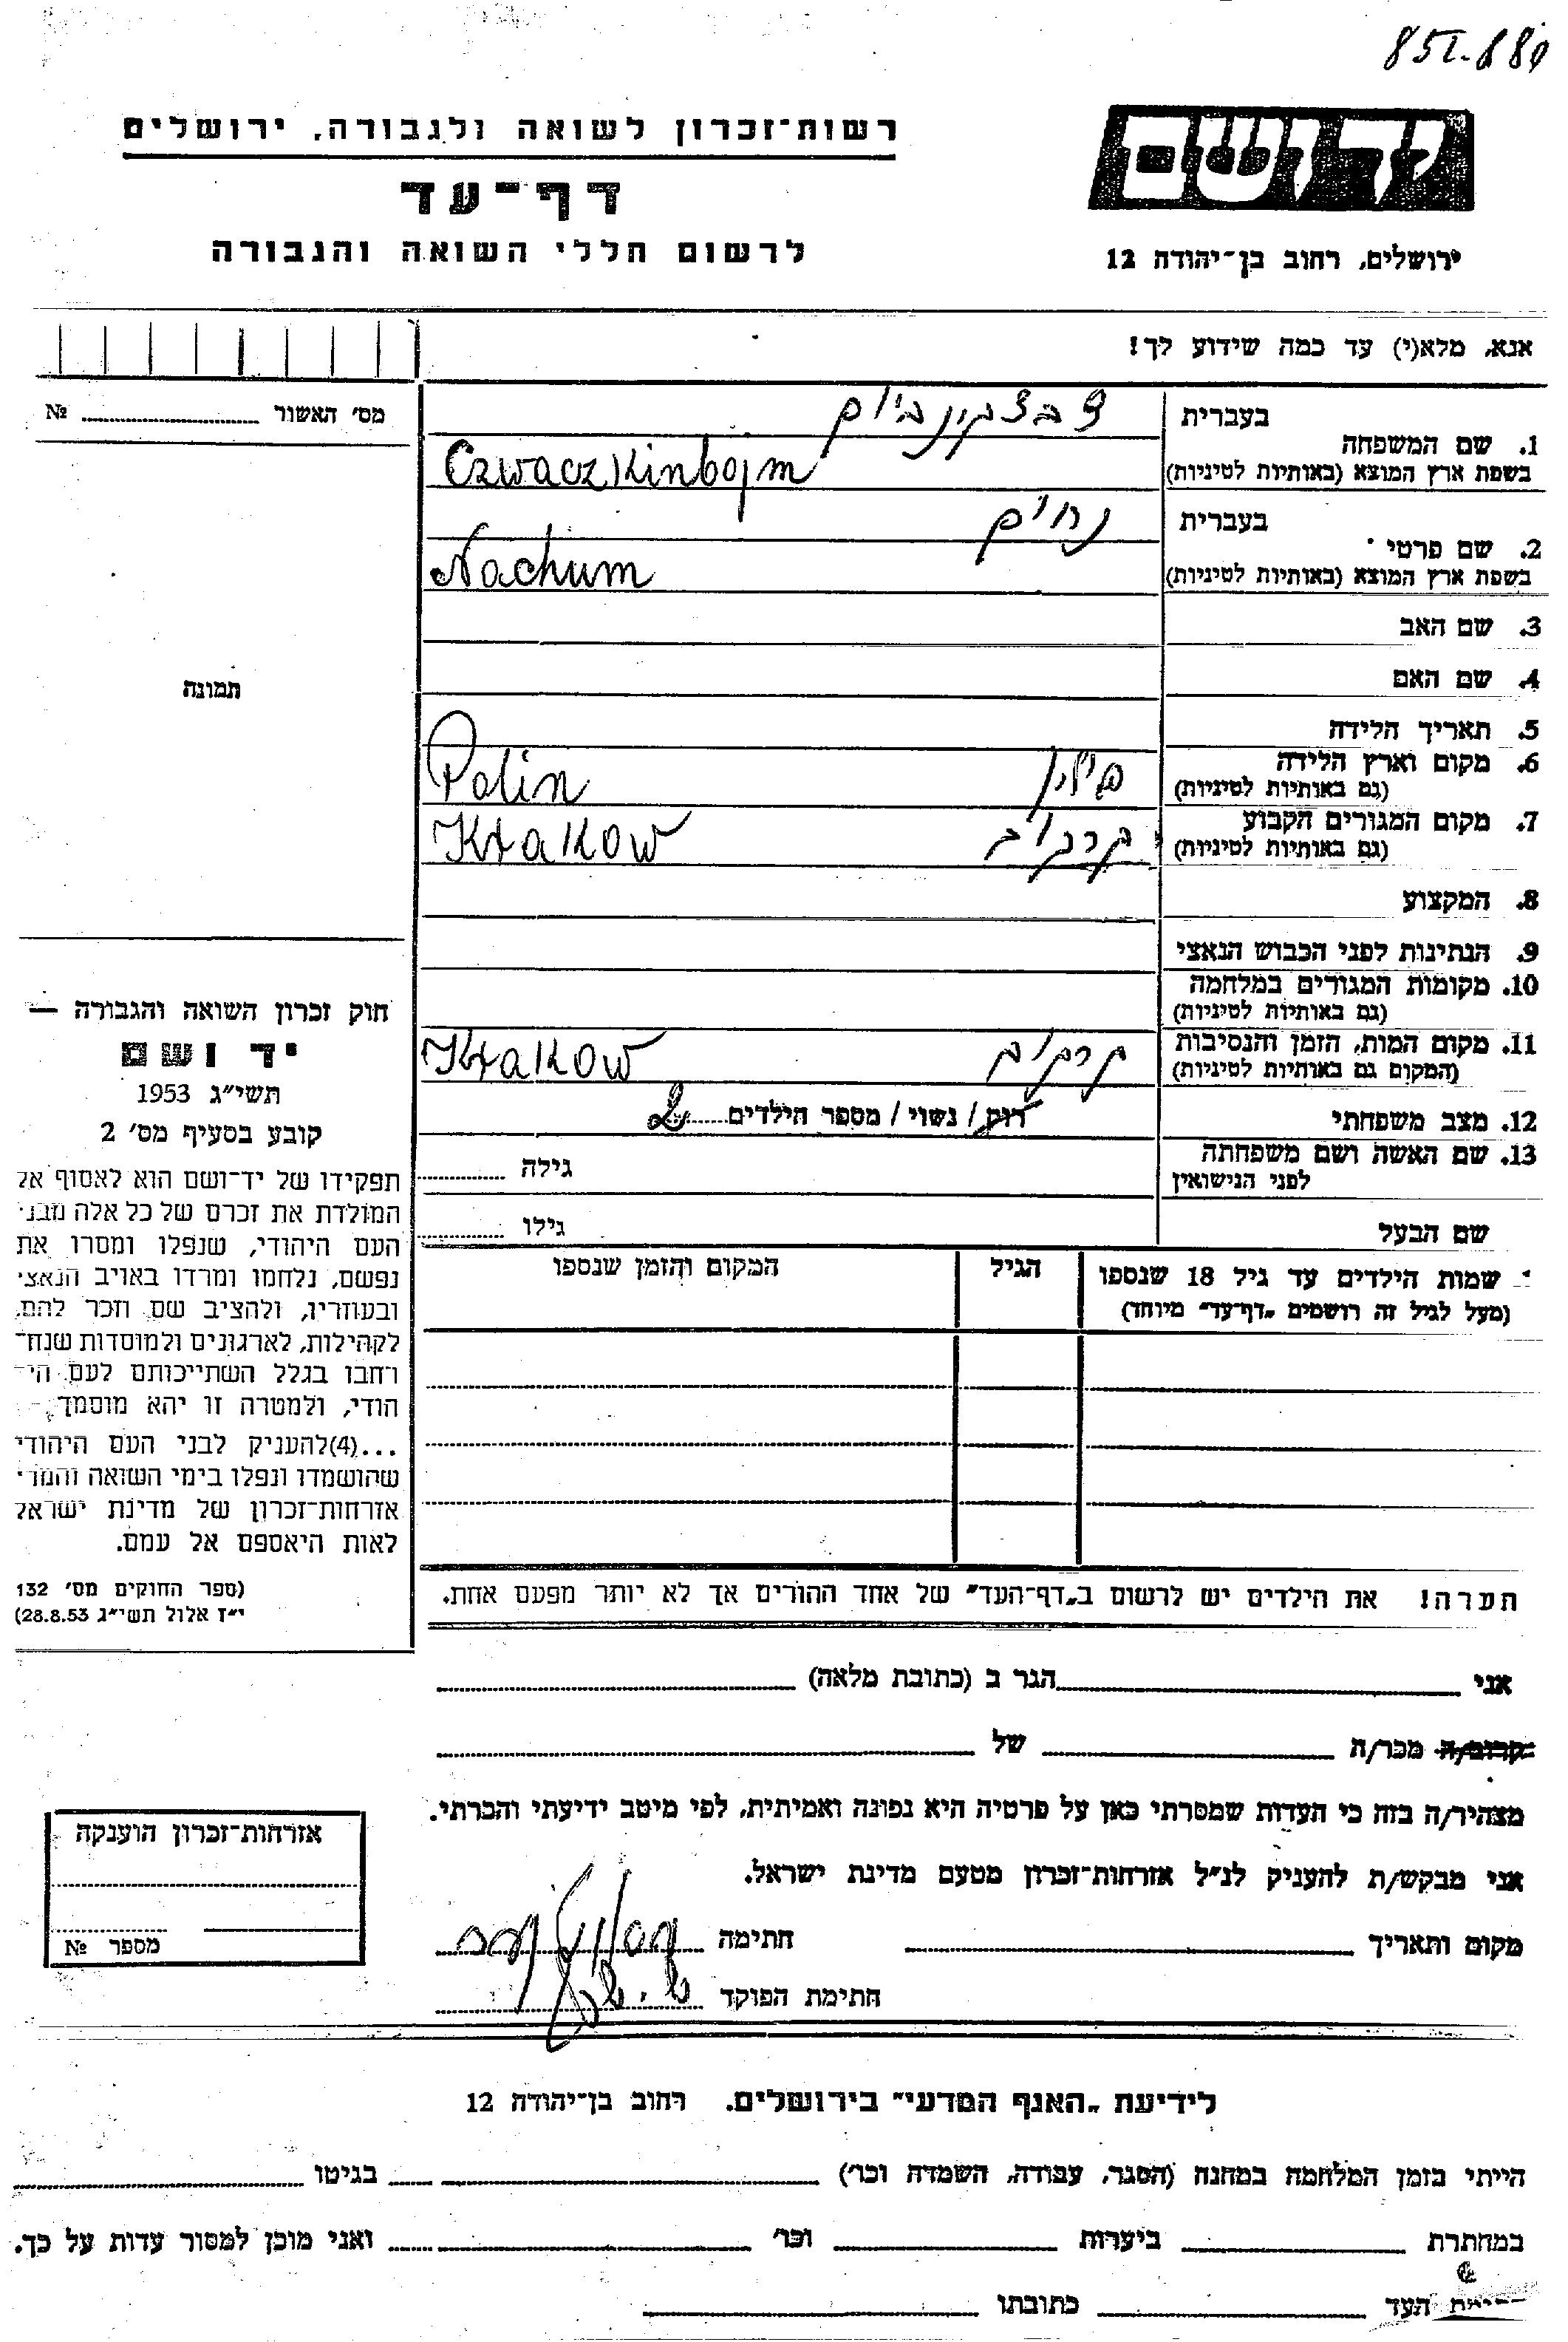 רשות־זכרון לשואה ולגבורה, ירושלים
דף־עד
לרשום חללי השואה והגבורה
יד ושם
ירושלים, רחוב בן־יהודה 12
אנא, מלא(י) עד כמה שידוע לך!
מס׳ האשור № 
1. שם המשפחה
בעברית
בשפת ארץ המוצא (באותיות לטיניות)
Czwaczkinbojm
2. שם פרטי
בעברית נחום
בשפת ארץ המוצא (באותיות לטיניות)
Nachum
3. שם האב
4. שם האם
5. תאריך הלידה
6. מקום וארץ הלידה פולין Polin
(גם באותיות לטיניות)
7. מקום המגורים הקבוע קרקוב Krakow
(גם באותיות לטיניות)
8. המקצוע
9. הנתינות לפני הכבוש הנאצי
10. מקומות המגורים במלחמה
(גם באותיות לטיניות)
11. מקום המות, הזמן והנסיבות קרקוב Krakow
(המקום גם באותיות לטיניות)
12. מצב משפחתי רוק / נשוי / מספר הילדים 2
13. שם האשה ושם משפחתה
לפני הנישואין גילה
שם הבעל גילו
שמות הילדים עד גיל 18 שנספו הגיל המקום והזמן שנספו
(מעל לגיל זה רושמים „דף־עד” מיוחד)
תמונה
חוק זכרון השואה והגבורה —
יד ושם
תשי״ג 1953
קובע בסעיף מס׳ 2
תפקידו של יד־ושם הוא לאסוף אל
המולדת את זכרם של כל אלה מבני
העם היהודי, שנפלו ומסרו את
נפשם, נלחמו ומרדו באויב הנאצי
ובעוזריו, ולהציב שם וזכר להם,
לקהילות, לארגונים ולמוסדות שנח־
רחבו בגלל השתייכותם לעם הי־
הודי, ולמטרה זו יהא מוסמך,
...(4)להעניק לבני העם היהודי
שהושמדו ונפלו בימי השואה והמרי
אזרחות־זכרון של מדינת ישראל
לאות היאספם אל עמם.
(ספר החוקים מס׳ 132
י״ז אלול תשי״ג 28.8.53)
הערה! את הילדים יש לרשום ב„דף־העד” של אחד ההורים אך לא יותר מפעם אחת.
אני הגר ב (כתובת מלאה)
קרוב/ה מכר/ה של
מצהיר/ה בזה כי העדות שמסרתי כאן על פרטיה היא נכונה ואמיתית, לפי מיטב ידיעתי והכרתי.
אני מבקש/ת להעניק לנ״ל אזרחות־זכרון מטעם מדינת ישראל.
מקום ותאריך חתימה
חתימת הפוקד
אזרחות־זכרון הוענקה
מספר №
לידיעת „האגף המדעי” בירושלים. רחוב בן־יהודה 12
הייתי בזמן המלחמה במחנה (הסגר, עבודה, השמדה וכו׳) בגיטו
במחתרת ביערות וכו׳ ואני מוכן למסור עדות על כך.
העד כתובתו